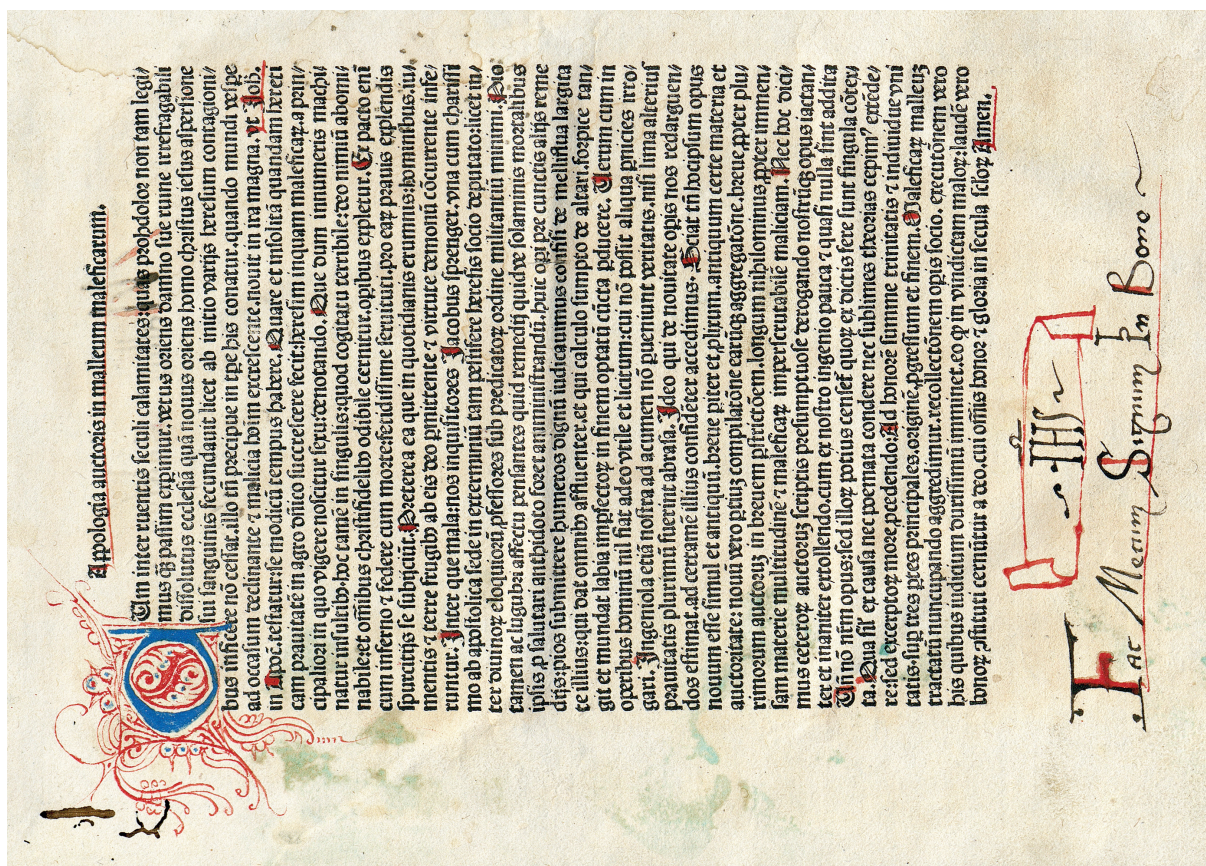 Apologia auctoris in malleum maleficarum.
Cum inter ruentis seculi calamitates: quas proh dolor non tam legi⸗
mus q̄ passim experimur. vetus oriens damno sue ruine irrefragabili
dissolutus ecclesiā quā nouus oriens homo christus iesus aspersione
sui sanguinis fecundauit licet ab initio varijs heresum contagioni⸗
bus inficere nō cessat. illo tn̄ precipue in tp̄e his conatur. quando mundi vespe
ad occasum declinante ⁊ malicia hoīm excrescente. nouit in ira magna. vt Ioh.
in Apoc̄. testatur se modicū tempus habere. Quare et insolitā quandam hereti
cam prauitatē in agro dn̄ico succrescere fecit: heresim inquam maleficaꝝ a prin⸗
cipaliori in quo vigere noscitur sexu denotando. Que dum innumeris machi⸗
natur insultibꝰ hoc tamē in singulis: quod cogitatu terribile: deo nimiū abomi⸗
nabile: et om̄ibus christifidelibꝰ odibile cernitur. opibus expletur. Ex pacto enī
cum inferno ⁊ federe cum morte fetidissime seruituti. pro earꝝ prauis explendis
spurcitijs se subijciūt. Preterea ea que in quotidianis erumnis. hominibus. iu⸗
mentis ⁊ terre frugibꝰ ab eis deo ꝑmittente ⁊ virtute demonū cōcurrente infe⸗
runtur. Inter que mala: nos inquisitores Jacobus sprenger. vna cum charissi
mo ab apostolica sede in exterminiū tam pestifere heresis socio deputato: licet in⸗
ter diuinoꝝ eloquioꝝ ꝓfessores sub predicatoꝝ ordine militantiū minimi. Pio:
tamen ac lugubri affectu pensantes quid remedij quidue solaminis mortalibus
ipsis ꝓ salutari anthidoto foret amministrandū. huic opi pre cunctis alijs reme
dijs pios submittere humeros dignū iudicauimus confisi de melliflua largita
te illius. qui dat omnibꝰ affluenter. et qui calculo sumpto de altari. forpice tan⸗
git et mundat labia imꝑfectoꝝ in finem optatū cūcta ꝑducere. Uerum cum in
operibus hominū nil fiat adeo vtile et licitum: cui nō possit aliqua pnicies irro⸗
gari. Ingeniola etiā nostra ad acumen nō ꝑueniunt veritatis. nisi lima alterius
prauitatis plurimū fuerint abrasa. Ideo qui de nouitate opis nos redarguen⸗
dos estimat. ad certamē illius confidēter accedimus. Sciat tn̄ hoc ipsum opus
nouum esse simul et antiquū. breue ꝑiter et ꝓlixum. antiquum certe materia et
auctoritate. nouū vero ꝑtiuꝫ compilatōne earūqꝫ aggregatōne. breue ꝓpter plu⸗
rimorum auctoreꝫ in breuem ꝑstrictōem. longum nihilominus ꝓpter immen⸗
sam materie multitudinē ⁊ maleficaꝝ imperscrutabilē maliciam. Nec hoc dici⸗
mus ceteroꝝ auctoruꝫ scriptis presumptuose derogando nostrūqꝫ opus iactan⸗
ter et inaniter extollendo. cum ex nostro ingenio pauca ⁊ quasi nulla sint addita
Un̄ nō nr̄m opus. sed illoꝝ potius censeſ quoꝝ ex dictis fere sunt singula cōtex⸗
ta. Qua sit ex causa nec poemata condere nec sublimes theorias cepimꝰ extēde⸗
re. sed excerptoꝝ more procedendo: Ad honorē summe trinitatis ⁊ indiuidue vni
tatis sup̄ tres ꝑtes principales. originē. ꝓgressum et finem. Maleficaꝝ malleuꝫ
tractatū nuncupando aggredimur. recollectōnem opis socio. executōnem vero
his quibus iudicium durissimū imminet. eo ꝙ in vindictam maloꝝ laudē vero
bonoꝝ ꝯstituti cernūtur a deo cui om̄is honor ⁊ gloria in secula sc̄loꝝ Amen.
IHS
Fac Mecum Signum In Bono